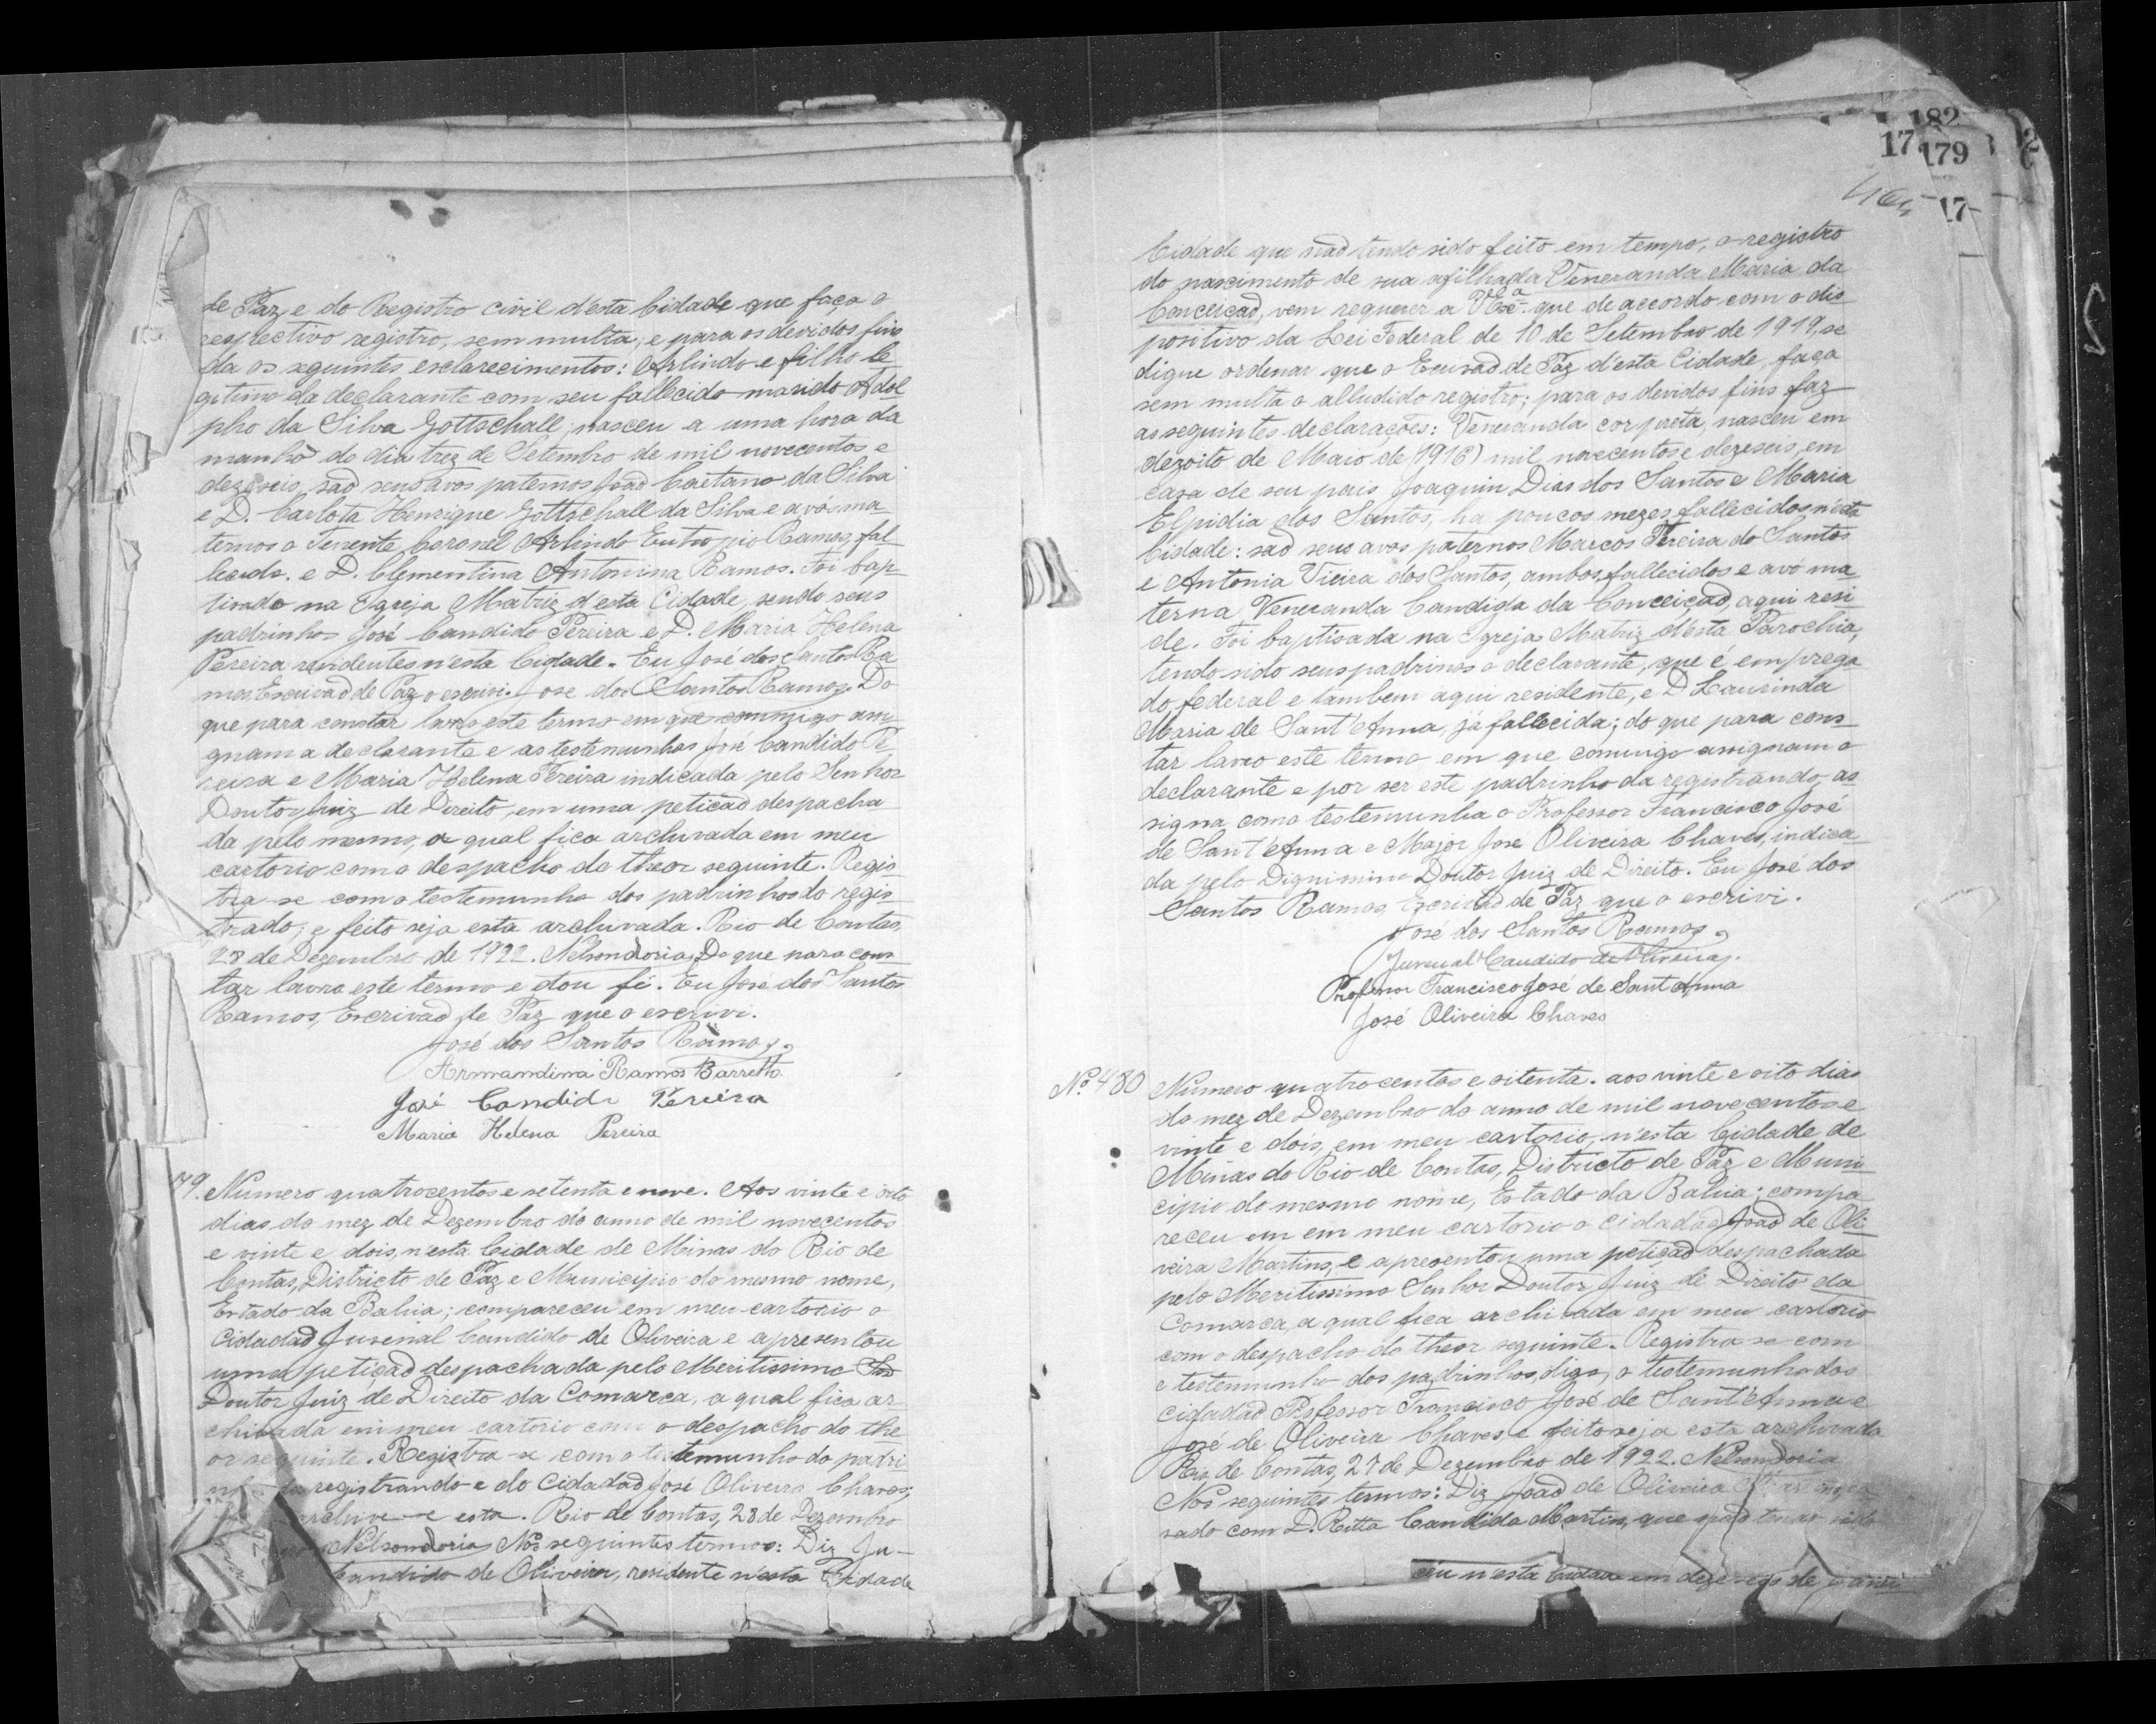 de Paz e do Registro civil d'esta Cidade que faça o
respectivo registro, sem multa; e para os devidos fins
da os seguintes esclarecimentos: Arlindo e filho le
gitimo da declarante com seu fallecido marido Adol
pho da Silva Gottschall, nasceu a uma hora da
manhã do dia trez de Setembro de mil novecentos e
dezeseis, são seus avos paternos João Caetano da Silva
e D. Carlota Henrique Gottschall da Silva e avós ma
ternos o Tenente Coronel Arlindo Eutropio Ramos, fal
lecido. e D. Clementina Antonina Ramos. Foi bap
tisado na Egreja Matriz d'esta Cidade, sendo seus
padrinhos José Candido Pereira e D. Maria Helena
Pereira residentes n'esta Cidade. Eu José dos Santos Ra
mos, Escrivão de Paz o escrivi. Jose dos Santos Ramos. Do
que para constar lavro este termo em que commigo assi
gnam a declarante e as testemunhas José Candido Pe
reira e Maria Helena Pereira indicada pelo Senhor
Doutor Juiz de Direito, em uma petição despacha
da pelo mesmo, a qual fica archivada em meu
cartorio com o despacho do theor seguinte. Regis
tra-se com o testemunho dos padrinhos do regis
trado; e feito seja esta archivada. Rio de Contas,
28 de Dezembro de 1922. Nelson Doria, Do que para cons
tar lavro este termo e dou fé. Eu José dos Santos
Ramos, Escrivão de Paz que o escrivi.
José dos Santos Ramos,
Armandina Ramos Barretto
José Candido Pereira
Maria Helena Pereira
79. Numero quatrocentos e setenta e nove. Aos vinte e oito
dias do mez de Dezembro do anno de mil novecentos
e vinte e dois, n'esta Cidade de Minas do Rio de
Contas, Districto de Paz e Municipio do mesmo nome,
Estado da Bahia; compareceu em meu cartorio o
Cidadão Juvenal Candido de Oliveira e apresentou
uma petição despachada pelo Meritissimo Snr
Doutor Juiz de Direito da Comarca, a qual fica ar
chivada em meu cartorio com o despacho do the
or seguinte. Registra-se com o testemunho do padri
registrando e do Cidadão José Oliveira Chaves;
archive-se esta. Rio de Contas, 28 de Dezembro
Nelson Doria, Nos seguintes termos: Diz Ju-
Candido de Oliveira, residente n'esta Cidade
182
17 179
17
Cidade que não tendo sido feito em tempo, o registro
do nascimento de sua afilhada Veneranda Maria da
Conceição, vem requerer a V Exª que de accordo com o dis
positivo da Lei Federal de 10 de Setembro de 1919, se
digne ordenar que o Escrivão de Paz d'esta Cidade, faça
sem multa o alludido registro; para os devidos fins faz
as seguintes declarações: Veneranda cor preta, nasceu em
dezoito de Maio de (1916) mil novecentos e dezeseis, em
casa de seu pais Joaquim Dias dos Santos e Maria
Elpidia dos Santos, ha poucos mezes fallecidos n'esta
Cidade: são seus avos paternos Marcos Pereira do Santos
e Antonia Vieira dos Santos, ambos fallecidos e avó ma
terna Veneranda Candida da Conceição, aqui resi
de. Foi baptisada na Igreja Matriz d'esta Parochia,
tendo sido seus padrinos o declarante, que é emprega
do federal e tambem aqui residente, e D Laurinda
Maria de Sant'Anna já fallecida; do que para cons
tar lavro este termo em que comigo assignam o
declarante e por ser este padrinho da registrando, as
signa como testemunha o Professor Francisco José
de Sant'Anna e Major José Oliveira Chaves, indica
da pelo Dignissimo Doutor Juiz de Direito. Eu José dos
Santos Ramos, Escrivão de Paz que o escrivi.
José dos Santos Ramos,
Juvenal Candido de Oliveira.
Professor Francisco José de Sant'Anna
José Oliveira Chaves
Nº 480 Numero quatrocentos e oitenta. aos vinte e oito dias
do mez de Dezembro do anno de mil novecentos e
vinte e dois, em meu cartorio, n'esta Cidade de
Minas do Rio de Contas, Districto de Paz e Muni
cipio do mesmo nome, Estado da Bahia; compa
receu em em meu cartorio o cidadão João de Oli
veira Martins, e apresentou uma petição despachada
pelo Meritissimo Senhor Doutor Juiz de Direito da
Comarca, a qual fica archivada em meu cartorio
com o despacho do theor seguinte. Registra-se com
o testemunho dos padrinhos, digo, o testemunho dos
Cidadão Professor Francisco José de Sant'Anna e
José de Oliveira Chaves e feito seja esta archivada
Rio de Contas, 27 de Dezembro de 1922. Nelson Doria
Nos seguintes termos: Diz João de Oliveira Martins, ca
sado com D. Ritta Candida Martins, que não tendo sido
ceu n'esta Cidade em dezeseis de janei